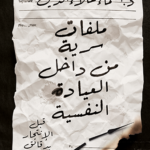 ملفات
سرية
من داخل
العيادة
النفسية
قبل
الانتحار
بدقائق